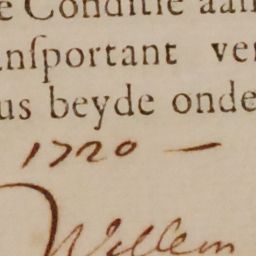 e Conditie aan
anſportant ver
us beyde onde
1720 —
Willem